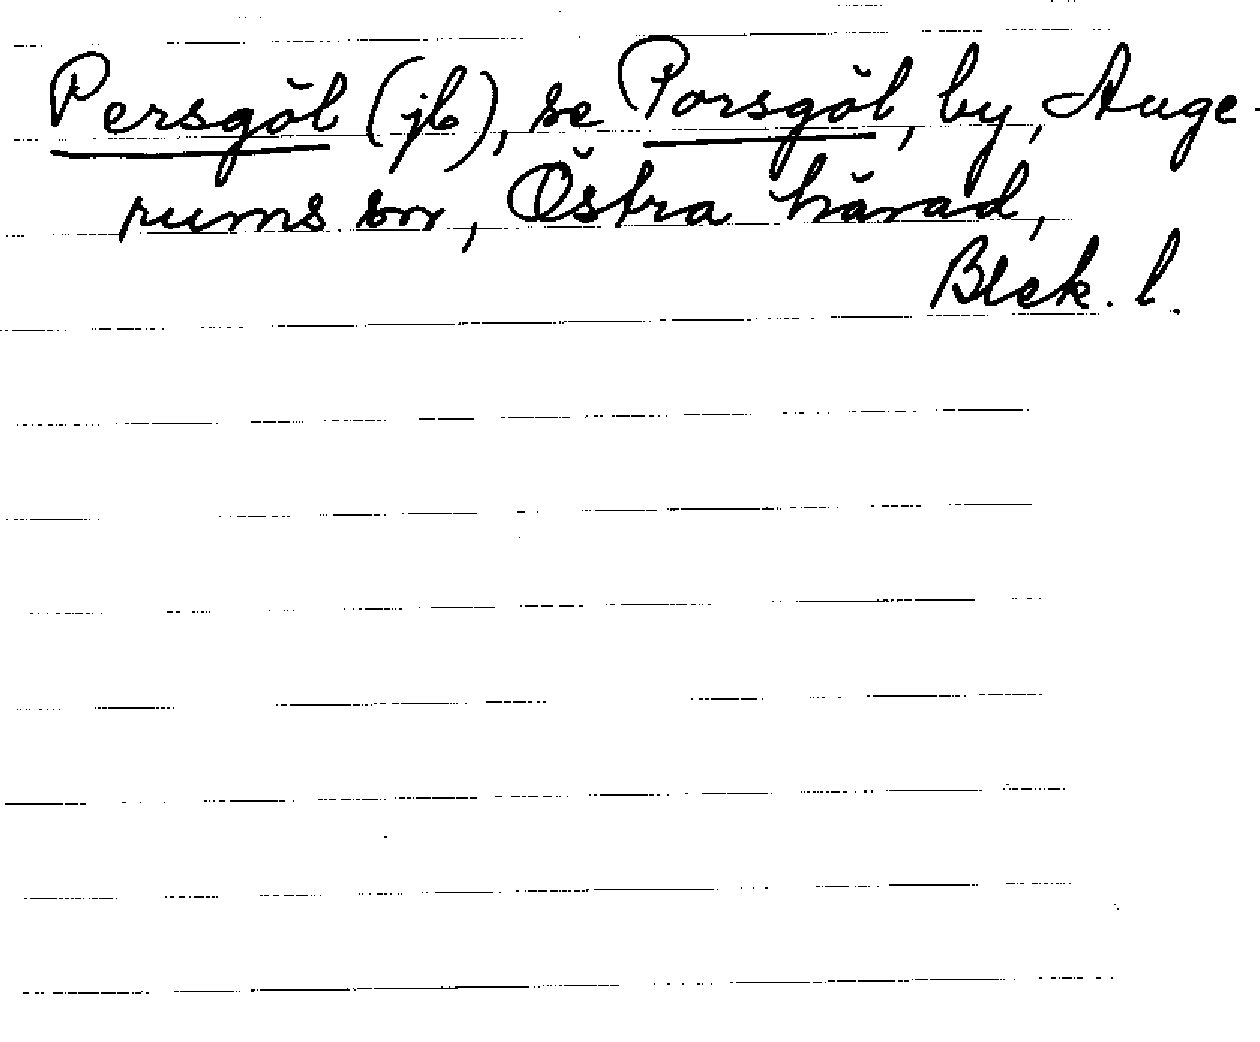 Persgöl (jb), se Porsgöl, by, Auge-
rums sn, Östra härad,
Blek. l.